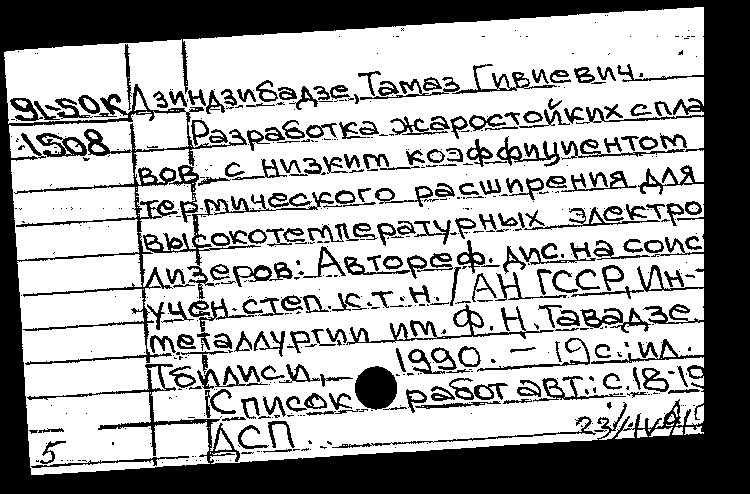 91-50к Дзиндзибадзе, Тамаз Гивиевич.
1508 Разработка жаростойких спла
вов с низким коэффициентом
термического расширения для
высокотемпературных электро
лизеров: Автореф. дис. на соис
учен. степ. к.т.н. / АН ГССР, Ин-т
металлургии им. Ф.Н. Тавадзе
Тбилиси, 1990. – 19 с.: ил.
Список работ авт.: с. 18-19
5 ДСП